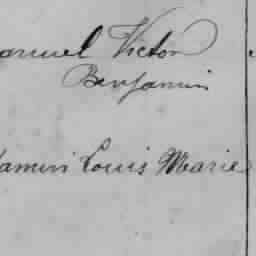 anuel Victor
Benjamin
jamin Louis Marie